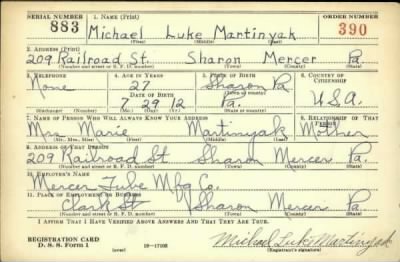 SERIAL NUMBER 1. NAME (Print) ORDER NUMBER
883 Michael Luke Martinyak 390
(First) (Middle) (Last)
2. ADDRESS (Print)
209 Railroad St. Sharon Mercer Pa
(Number and street or R. F. D. number) (Town) (County) (State)
3. TELEPHONE 4. AGE IN YEARS 5. PLACE OF BIRTH 6. COUNTRY OF CITIZENSHIP
None 27 Sharon Pa
DATE OF BIRTH
7 29 12 Pa. U.S.A.
7. NAME OF PERSON WHO WILL ALWAYS KNOW YOUR ADDRESS 8. RELATIONSHIP OF THAT PERSON
Mrs. Marie Martinyak Mother
(Mr., Mrs., Miss) (First) (Middle) (Last)
9. ADDRESS OF THAT PERSON
209 Railroad St Sharon Mercer Pa.
(Number and street or R. F. D. number) (Town) (County) (State)
10. EMPLOYER'S NAME
Mercer Tube Mfg Co.
11. PLACE OF EMPLOYMENT OR BUSINESS
Clark St Sharon Mercer Pa.
(Number and street or R. F. D. number) (Town) (County) (State)
I AFFIRM THAT I HAVE VERIFIED ABOVE ANSWERS AND THAT THEY ARE TRUE.
REGISTRATION CARD
D. S. S. FORM 1 (over) Michael Luke Martinyak
(Registrant's signature)